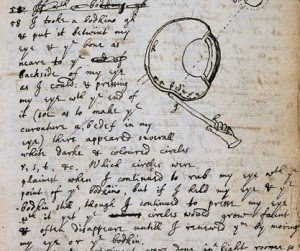 58 I tooke a bodkine gh
& put it betwixt my
eye & ye bone as
neare to ye
backside of my eye
as I could: & pressing
my eye wth ye end of
it (soe as to make ye
curvature a, bcdef in my
eye) there appeared severall
white darke & coloured circles
r, s, t, &c. Which circles were
plainest when I continued to rub my eye wth ye
point of ye bodkine, but if I held my eye & ye
bodkin still though I continued to presse my eye
wth it yet ye circles would grow faint
& often disappeare untill I renewed ym by moving
my eye or ye bodkin.
were done in light roome